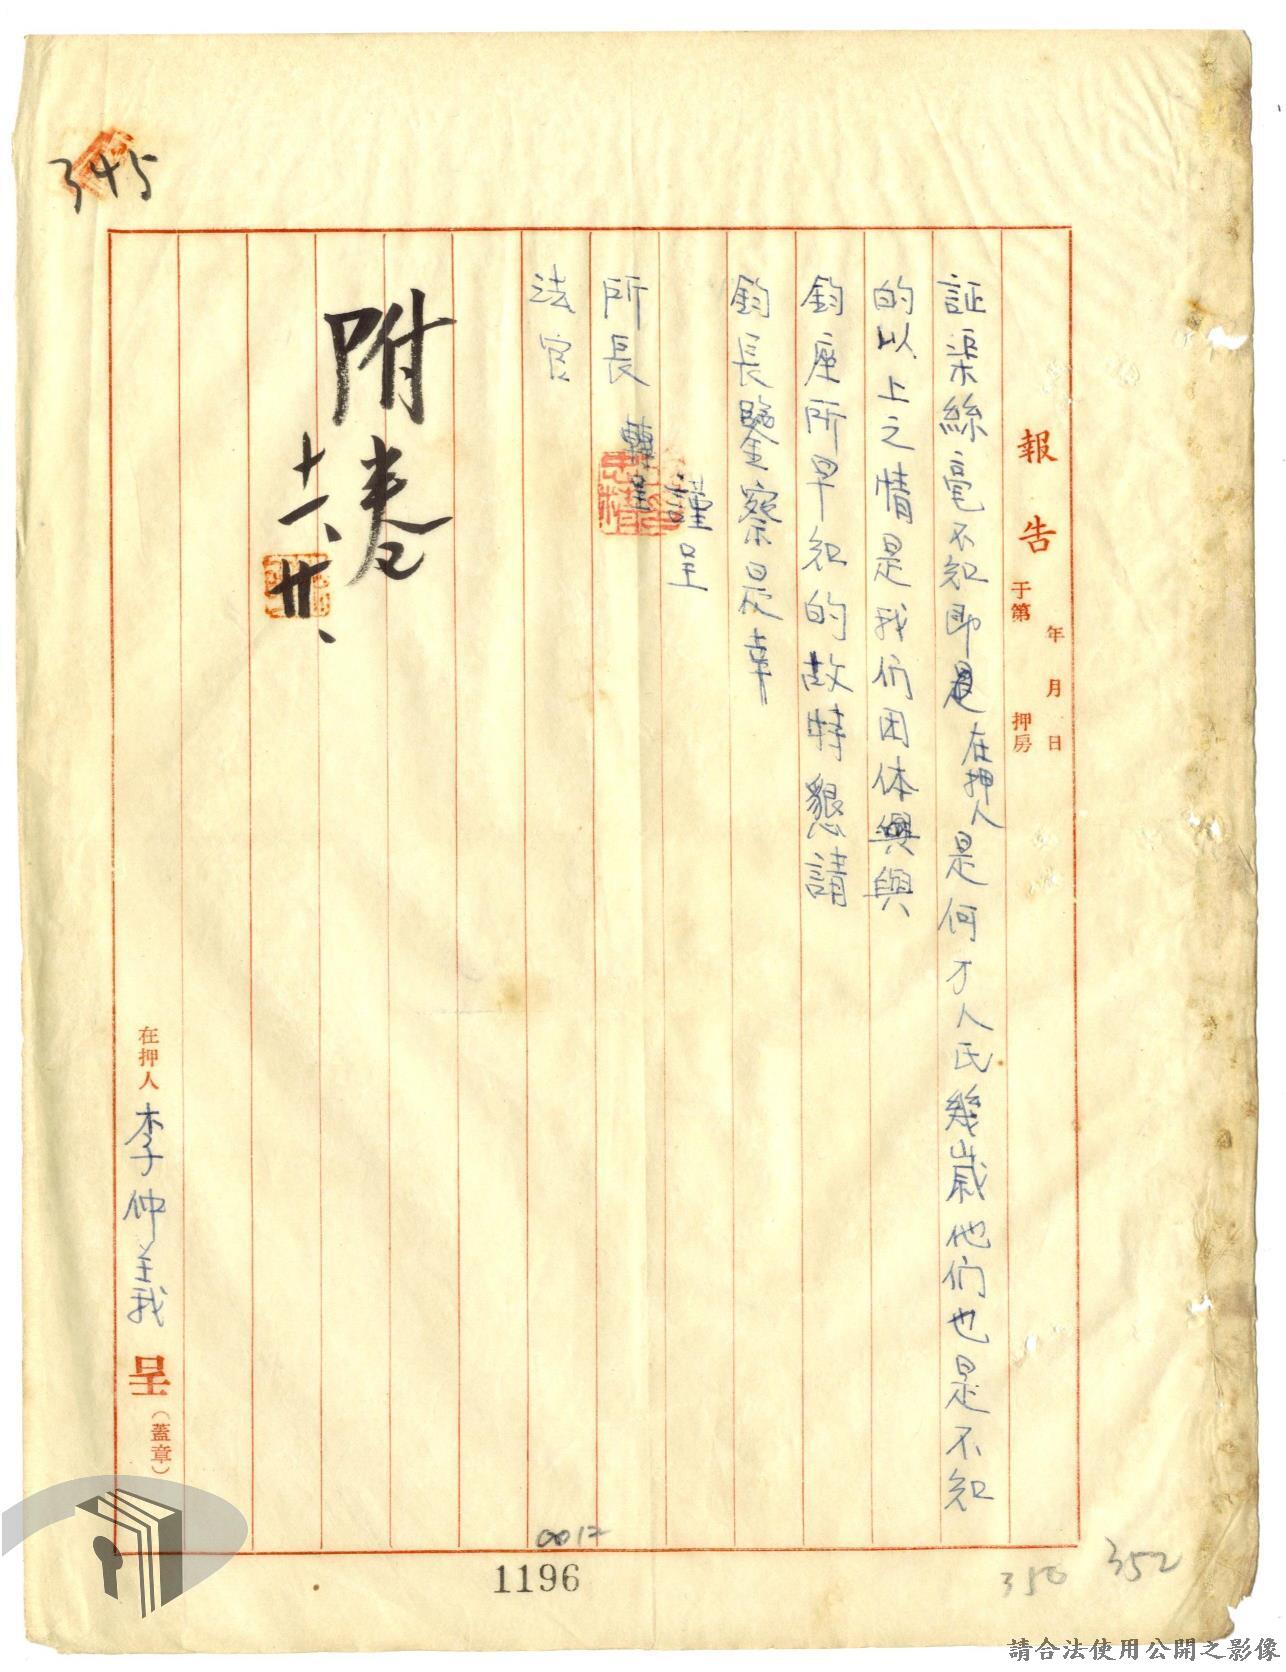 345
報告
年 月 日
于第 押房
証渠絲毫不知即是在押人是何才人民幾歳他們也是不知
的以上之情是我们团体與與
鈞座所早知的故特懇請
鈞長鑒察是幸
謹呈
所長 轉呈
法官
附卷
十一、廿、
在押人 李仲義 呈(蓋章)
0012
1196
350
352
請合法使用公開之影像